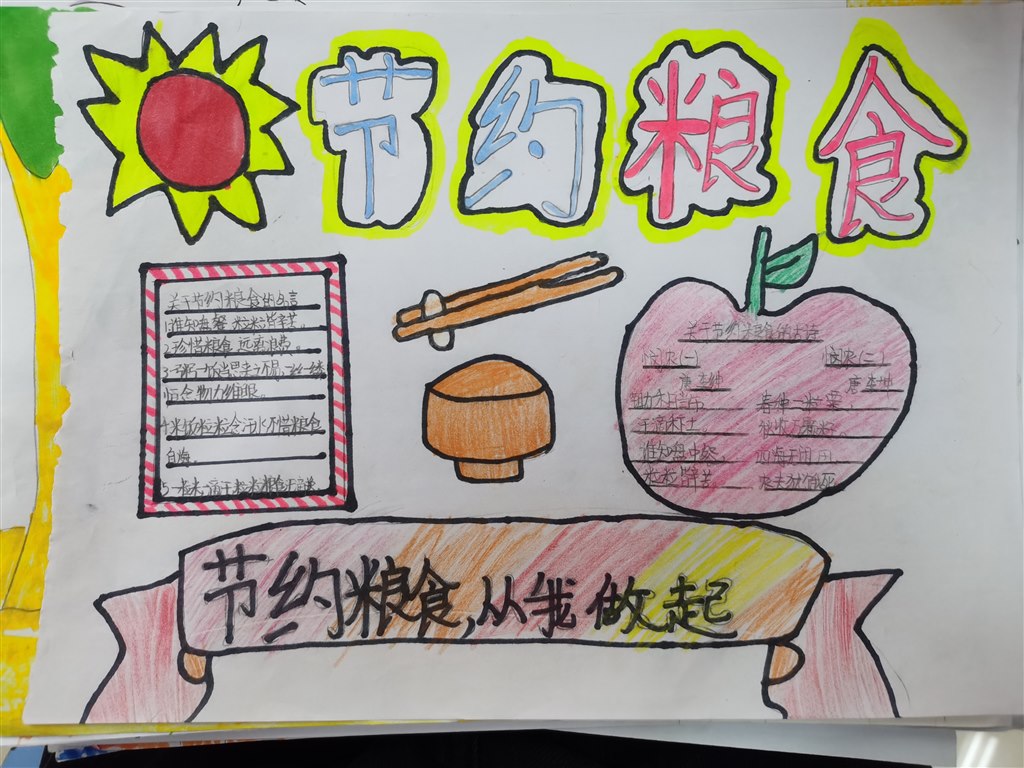 节约粮食
关于节约粮食的名言
1.谁知盘餐 粒粒皆辛苦。
2.珍惜粮食 远离浪费。
3.一粥一饭当思来之不易,
物力维艰。
4.米饭粒粒念汗水不惜粮食
5.一粒米,
关于节约粮食的古诗
悯农(一)
唐 李绅
锄禾日当午
汗滴禾下土
谁知盘中餐
粒粒皆辛苦
悯农(二)
唐 李绅
春种一粒粟,
秋收万颗籽
四海无闲田
农夫犹饿死
节约粮食,从我做起